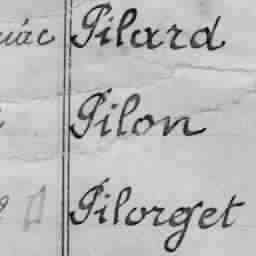 Pilard
Pilon
Pilorget